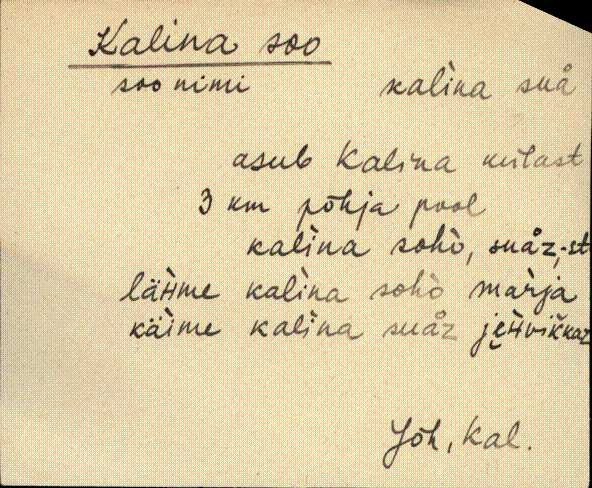 Kalina soo
soo nimi kaĺina suå
asub Kalina külast
3 km põhja pool
kaĺina sohò, suåz, -st
kaĺina sohò maŕja
käime kaĺina suåz
Jõh, Kal.